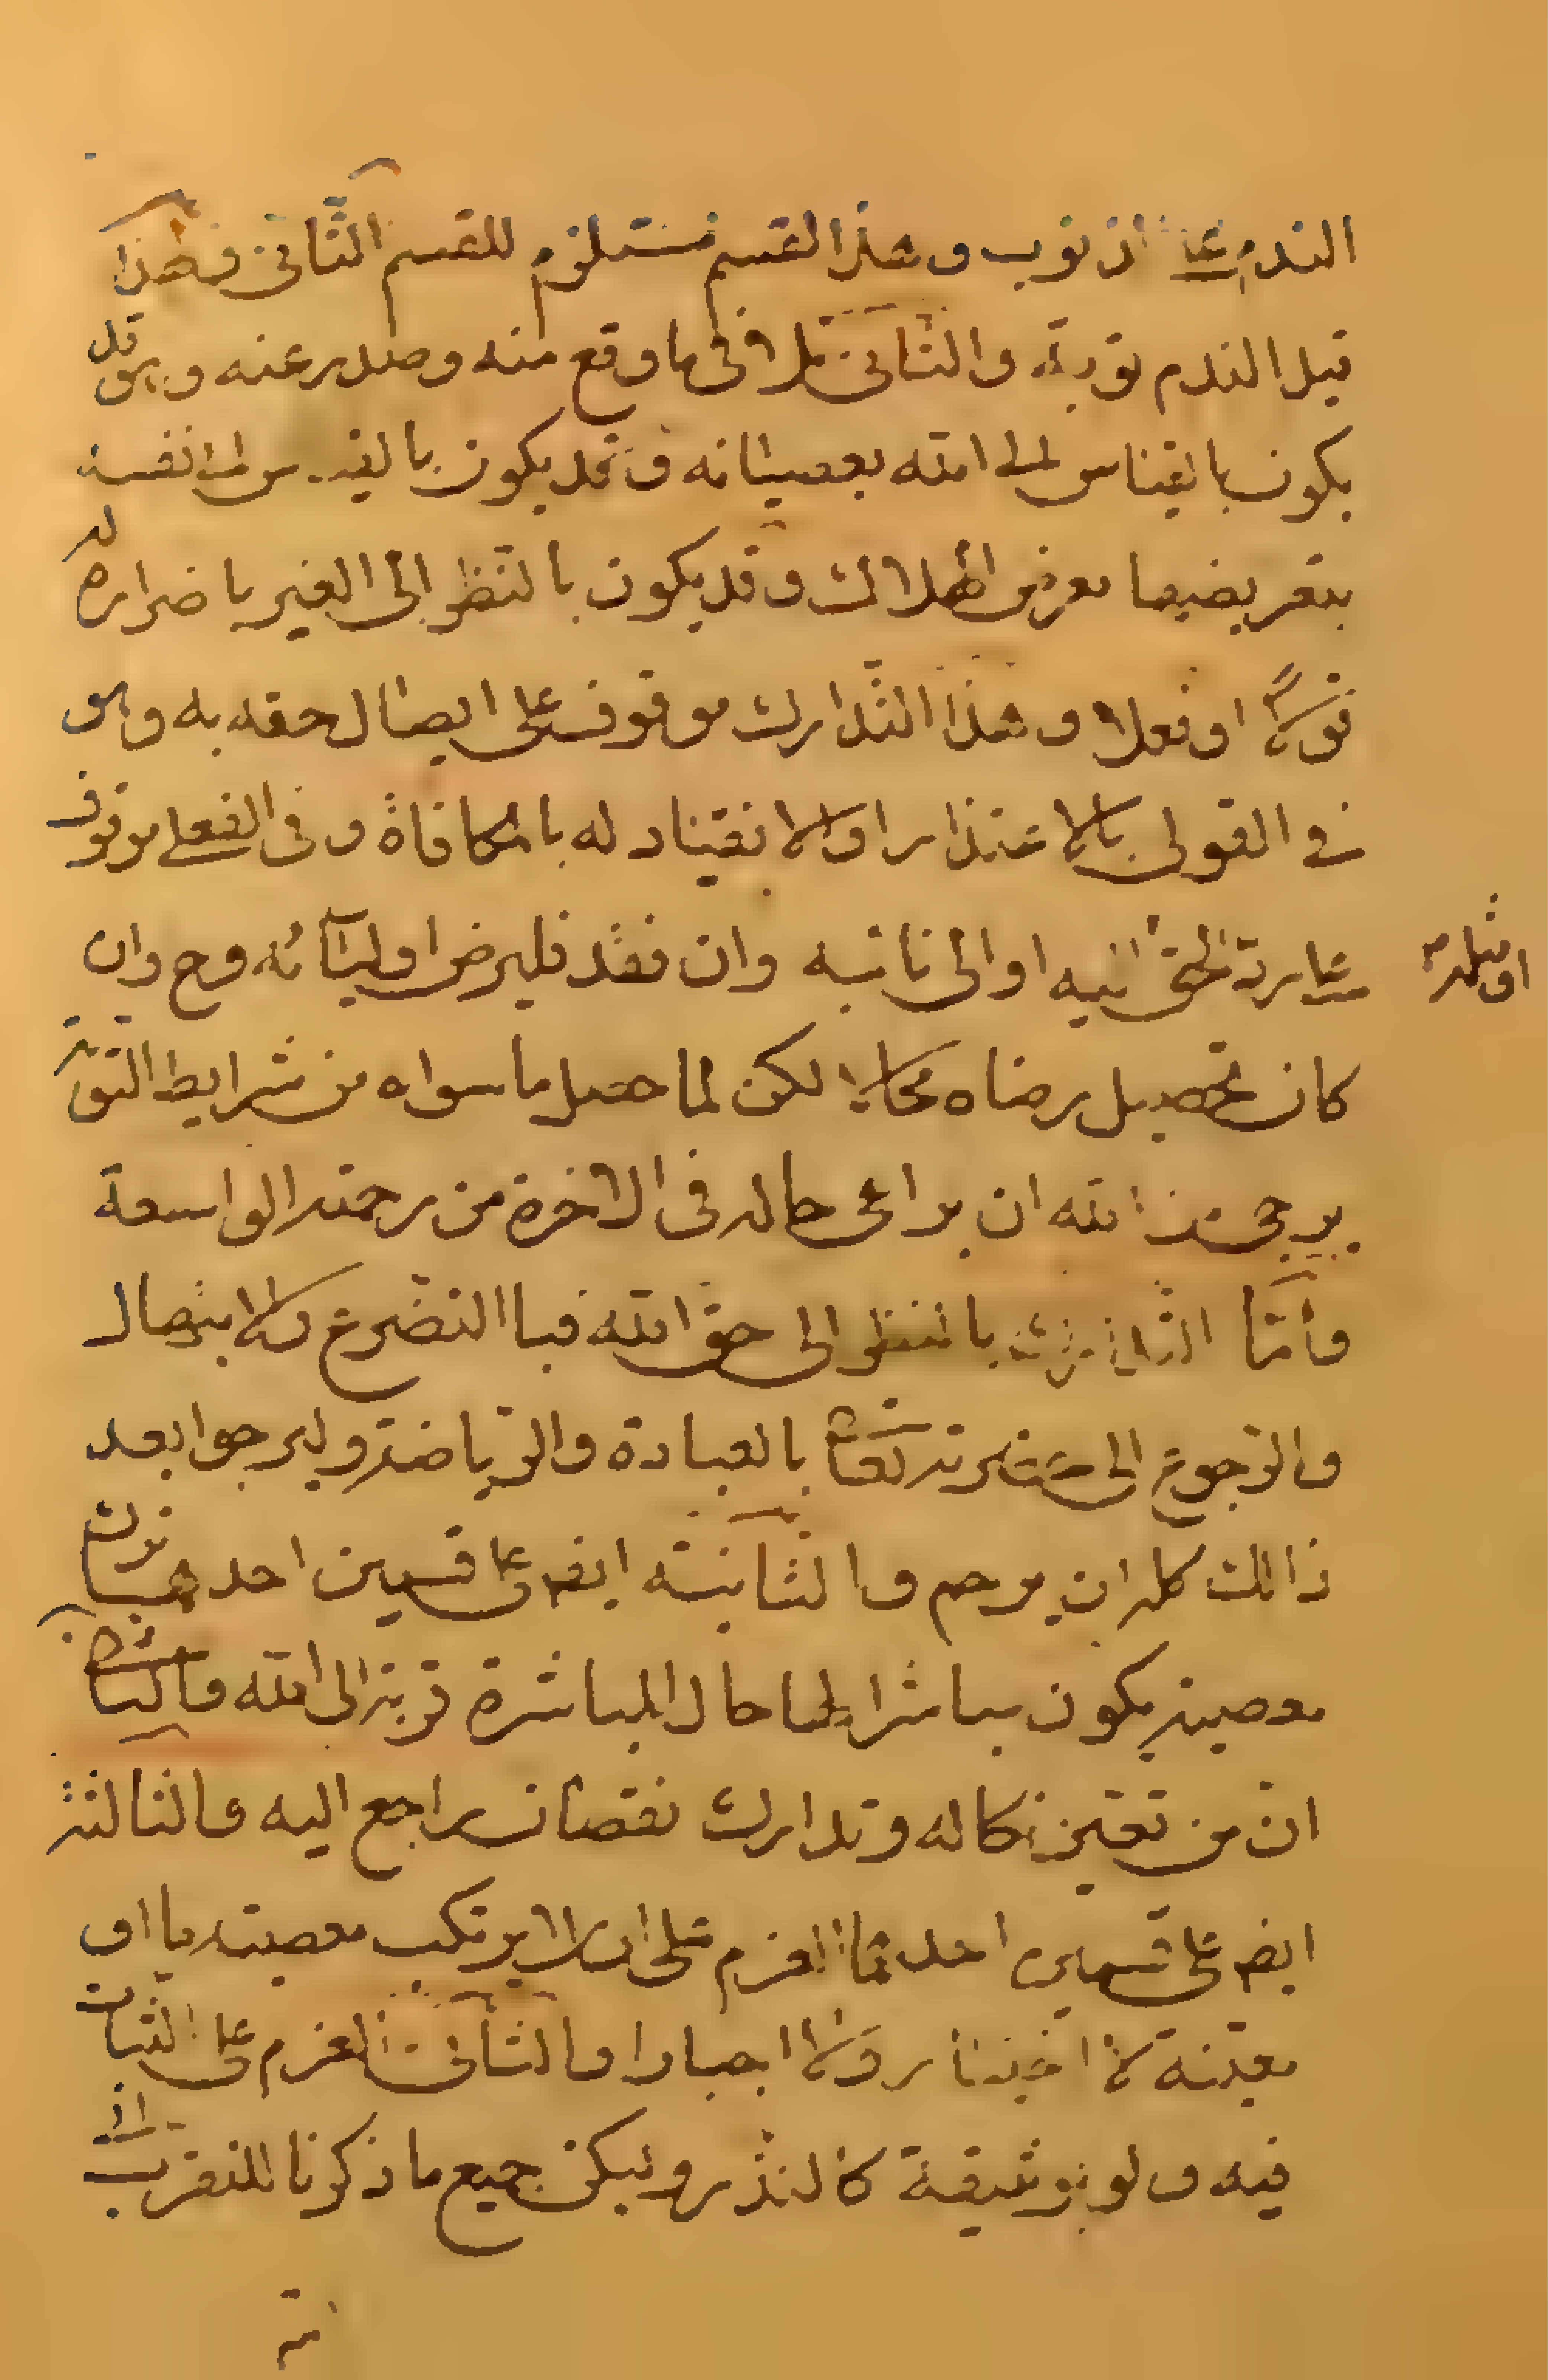 الندم على الذنوب وهذا القسم مستلزم للقسم الثانى فلهذا
قيل الندم توبة والثانى تلافى ما وقع منه وصدر عنه وهو قد
يكون بالقياس الى الله بعصيانه وقد يكون بالقياس الى نفسه
بتعريضها معرض الهلاك وقد يكون بالنظر الى الغير باضراره له
قولا او فعلا وهذا التدارك موقوف على ايصال حقه به وهو
فى القولى بالاعتذار او الانقياد له بالمكافاة وفى الفعلى موقوف
على رد الحق اليه او الى نائبه وان فقد فليرض اوليائه وح وان
او مثله
كان تحصيل رضاه محالا لكن لما حصل ما سواه من شرايط التوبة
يرجى من الله ان يراعى حاله فى الاخرة من رحمته الواسعة
وأمّا التدارك بالنظر الى حق الله فبا التضرع والابتهال
والرجوع الى حضرته تعالى بالعبادة والرياضة وليرجوا بعد
ذالك كله ان يرحم والثانية ايض على قسمين احدهما ترك
معصية يكون مباشرا لها حال المباشرة قربة الى الله والثانى
ان من نكاله وتدارك نقصان راجع اليه والثالثة
ايض على قسمين احدهما العزم على ان لا يرتكب معصية ما او
معينة لا اختيارا ولا اجبارا والثانى العزم على الثبات
فيه ولو بوثيقة كالنذر وليكن جميع ما ذكرنا للتقرب الى